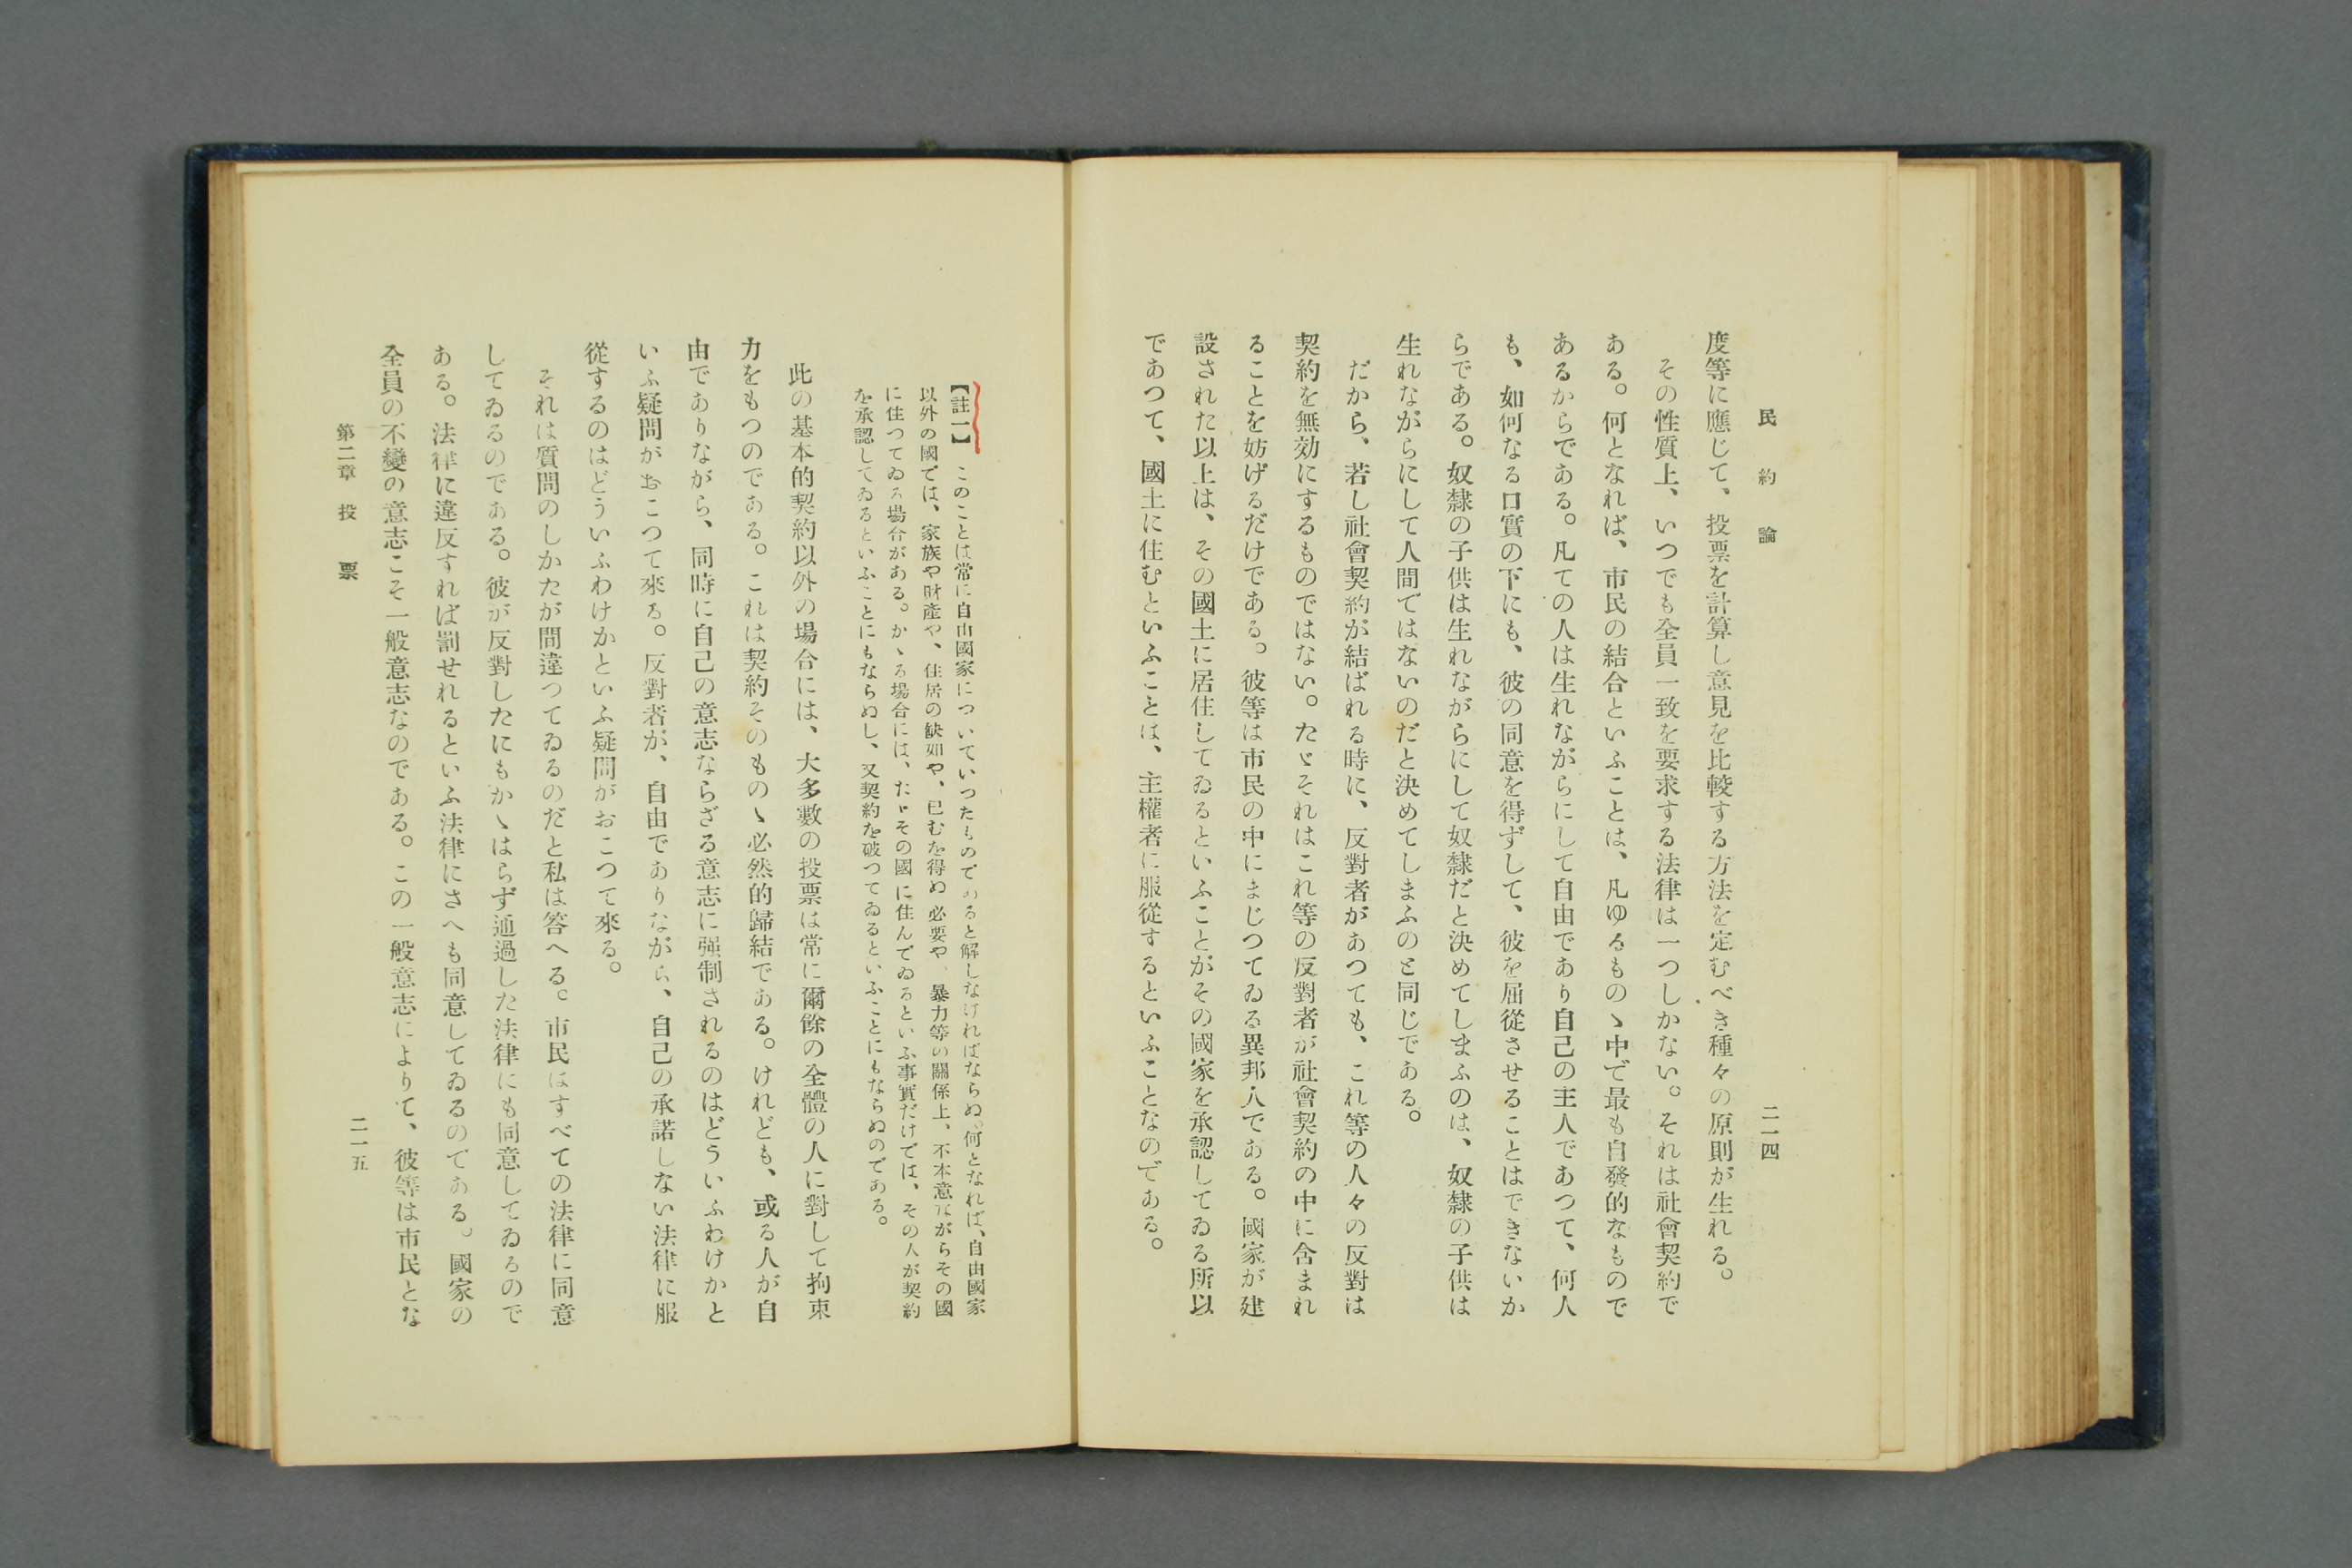 民約論
二一四
度等に應じて、投票を計算し意見を比較する方法を定むべき種々の原則が生れる。
その性質上、いつでも全員一致を要求する法律は一つしかない。それは社會契約で
ある。何となれば、市民の結合といふことは、凡ゆるものゝ中で最も自發的なもので
あるからである。凡ての人は生れながらにして自由であり自己の主人であつて、何人
も、如何なる口實の下にも、彼の同意を得ずして、彼を屈從させることはできないか
らである。奴隸の子供は生れながらにして奴隸だと決めてしまふのは、奴隸の子供は
生れながらにして人間ではないのだと決めてしまふのと同じである。
だから、若し社會契約が結ばれる時に、反對者があつても、これ等の人々の反對は
契約を無効にするものではない。たゞそれはこれ等の反對者が社會契約の中に含まれ
ることを妨げるだけである。彼等は市民の中にまじつてゐる異邦人である。國家が建
設された以上は、その國土に居住してゐるといふことがその國家を承認してゐる所以
であつて、國土に住むといふことは、主權者に服從するといふことなのである。
【註一】 このことは常に自由國家についていつたものであると解しなければならぬ。何となれば、自由國家
以外の國では、家族や財產や、住居の缺如や、已むを得ぬ必要や、暴力等の關係上、不本意ながらその國
に住つてゐる場合がある。かゝる場合には、たゞその國に住んでゐるといふ事實だけでは、その人が契約
を承認してゐるといふことにもならぬし、又契約を破つてゐるといふことにもならぬのである。
此の基本的契約以外の場合には、大多數の投票は常に爾餘の全體の人に對して拘束
力をもつのである。これは契約そのものゝ必然的歸結である。けれども、或る人が自
由でありながら、同時に自己の意志ならざる意志に强制されるのはどういふわけかと
いふ疑問がおこつて來る。反對者が、自由でありながら、自己の承諾しない法律に服
從するのはどういふわけかといふ疑問がおこつて來る。
それは質問のしかたが間違つてゐるのだと私は答へる。市民はすべての法律に同意
してゐるのである。彼が反對したにもかゝはらず通過した法律にも同意してゐるので
ある。法律に違反すれば罰せれるといふ法律にさへも同意してゐるのである。國家の
全員の不變の意志こそ一般意志なのである。この一般意志によりて、彼等は市民とな
第二章 投票
二一五